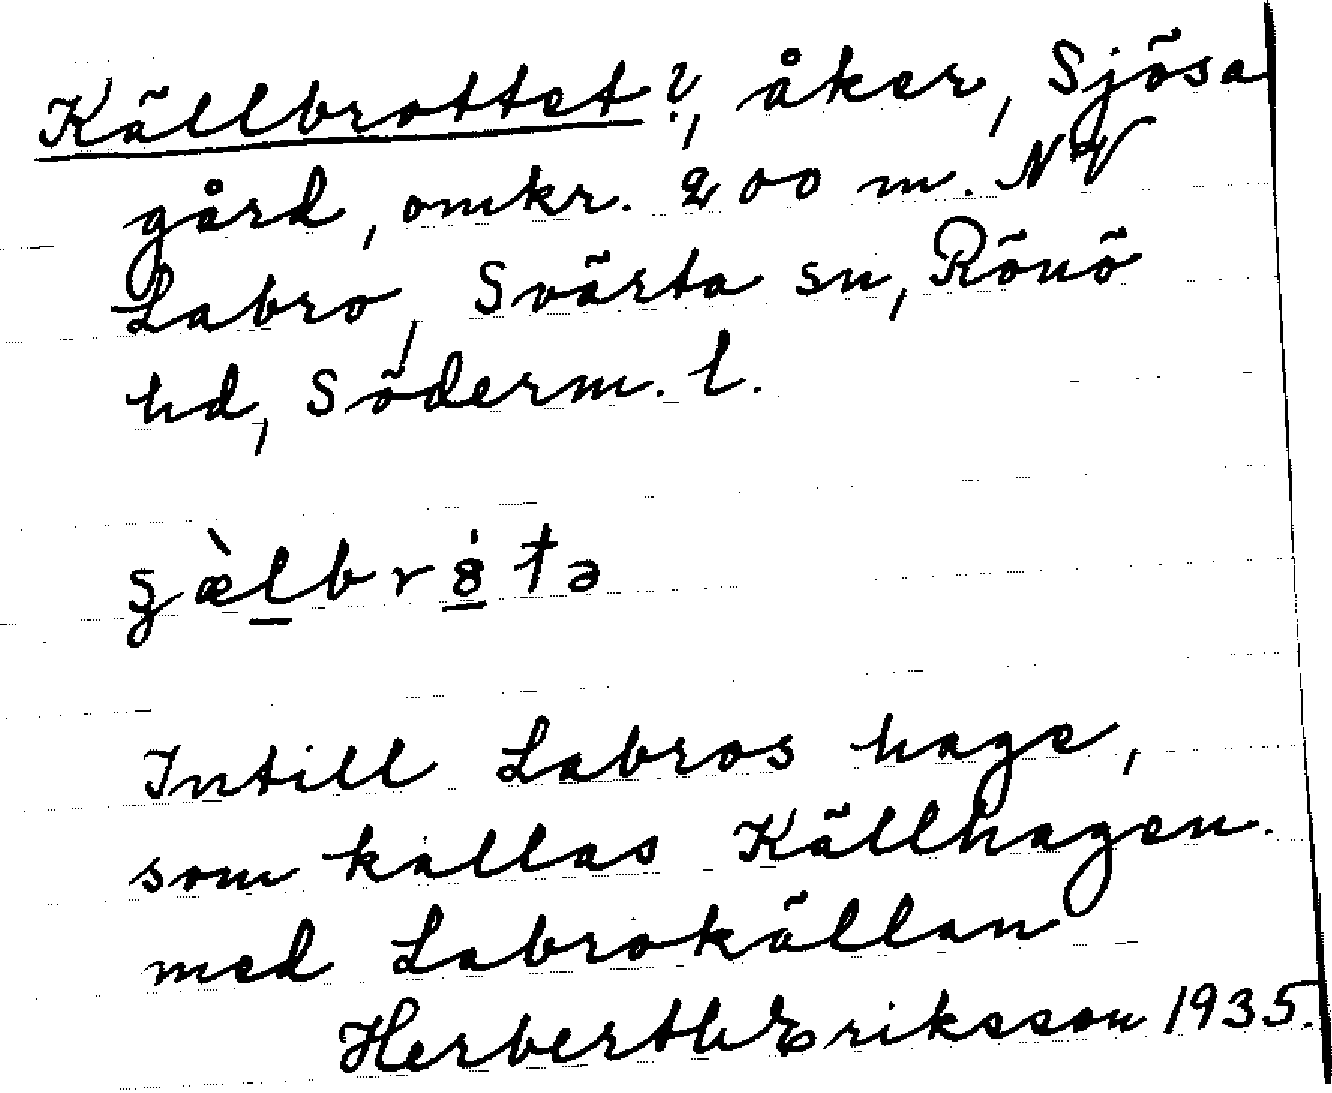 Källbrottet?, åker, Sjösa
gård, omkr. 200 m. NV
Labro, Svärta sn, Rönö
hd, Söderm. l.
Intill Labros hage,
som kallas Källhagen.
med Labrokällan
Herbert Eriksson 1935.